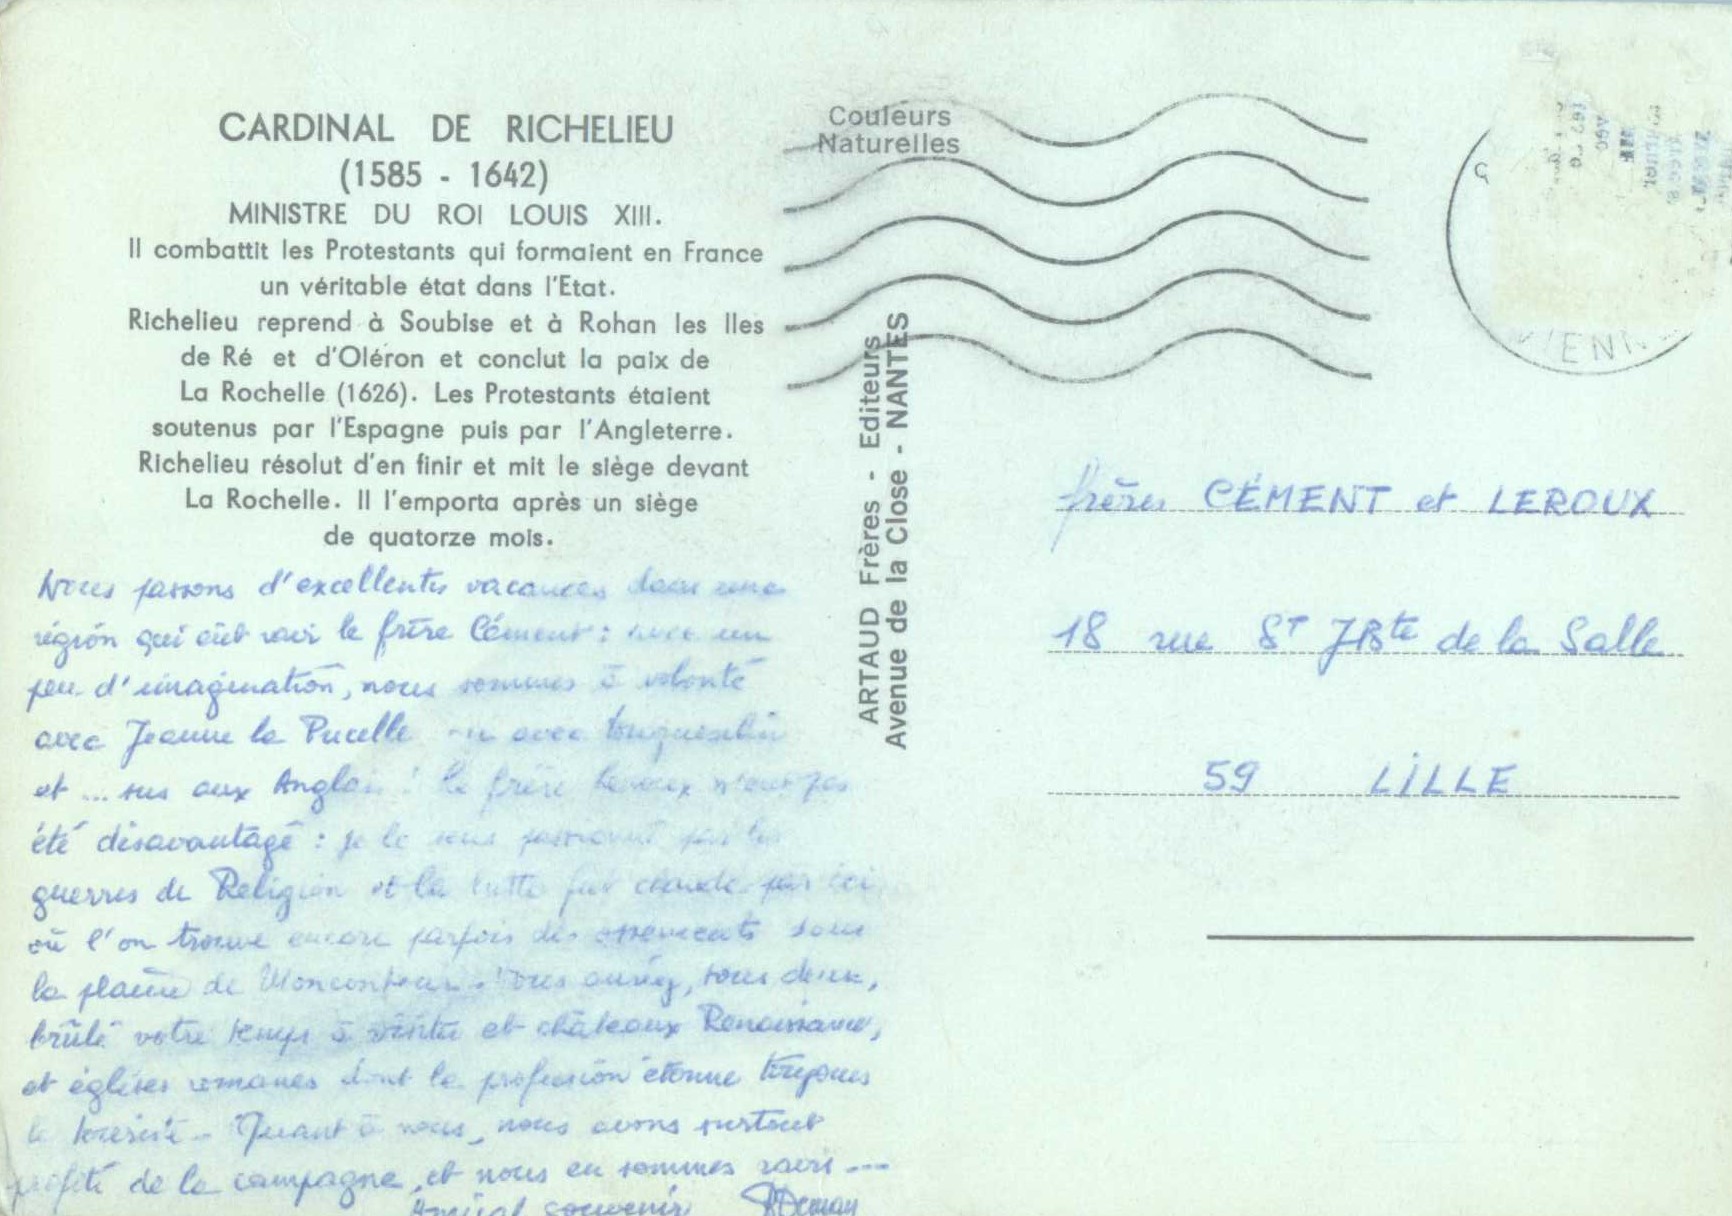 CARDINAL DE RICHELIEU
(1585 - 1642)
MINISTRE DU ROI LOUIS XIII.
Il combattit les Protestants qui formaient en France
un véritable état dans l'Etat.
Richelieu reprend à Soubise et à Rohan les Iles
de Ré et d'Oléron et conclut la paix de
La Rochelle (1626). Les Protestants étaient
soutenus par l'Espagne puis par l'Angleterre.
Richelieu résolut d'en finir et mit le siège devant
La Rochelle. Il l'emporta après un siège
de quatorze mois.
Nous passons d'excellentes vacances dans une
région qui eût ravi le frère Cément : avec un
peu d'imagination, nous sommes à volonté
avec Jeanne la Pucelle ou avec
et ... sus aux Anglais ! le frère Leroux n'eût pas
été désavantagé : je le sais passionné par les
guerres de Religion et la lutte fut chaude par ici
où l'on trouve encore parfois des ossements dans
la plaine de Moncontour. Vous auriez, tous deux,
brûlé votre temps à visiter et châteaux Renaissance,
et églises romanes dont la profusion étonne toujours
le touriste - Quant à nous, nous avons surtout
profité de la campagne, et nous en sommes ravis ---
Amical souvenir
Couleurs
Naturelles
ARTAUD Frères - Editeurs
Avenue de la Close - NANTES
VIENN
frères CÉMENT et LEROUX
18 rue St JBte de la Salle
59 LILLE